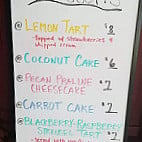 @ LEMON TART $8
- topped w/ strawberries &
whipped cream
@ COCONUT CAKE $6
@ PECAN PRALINE
CHEESECAKE $7
@ CARROT CAKE $7
@ BLACKBERRY-RASPBERRY
STRUSEL TART $7
- served with